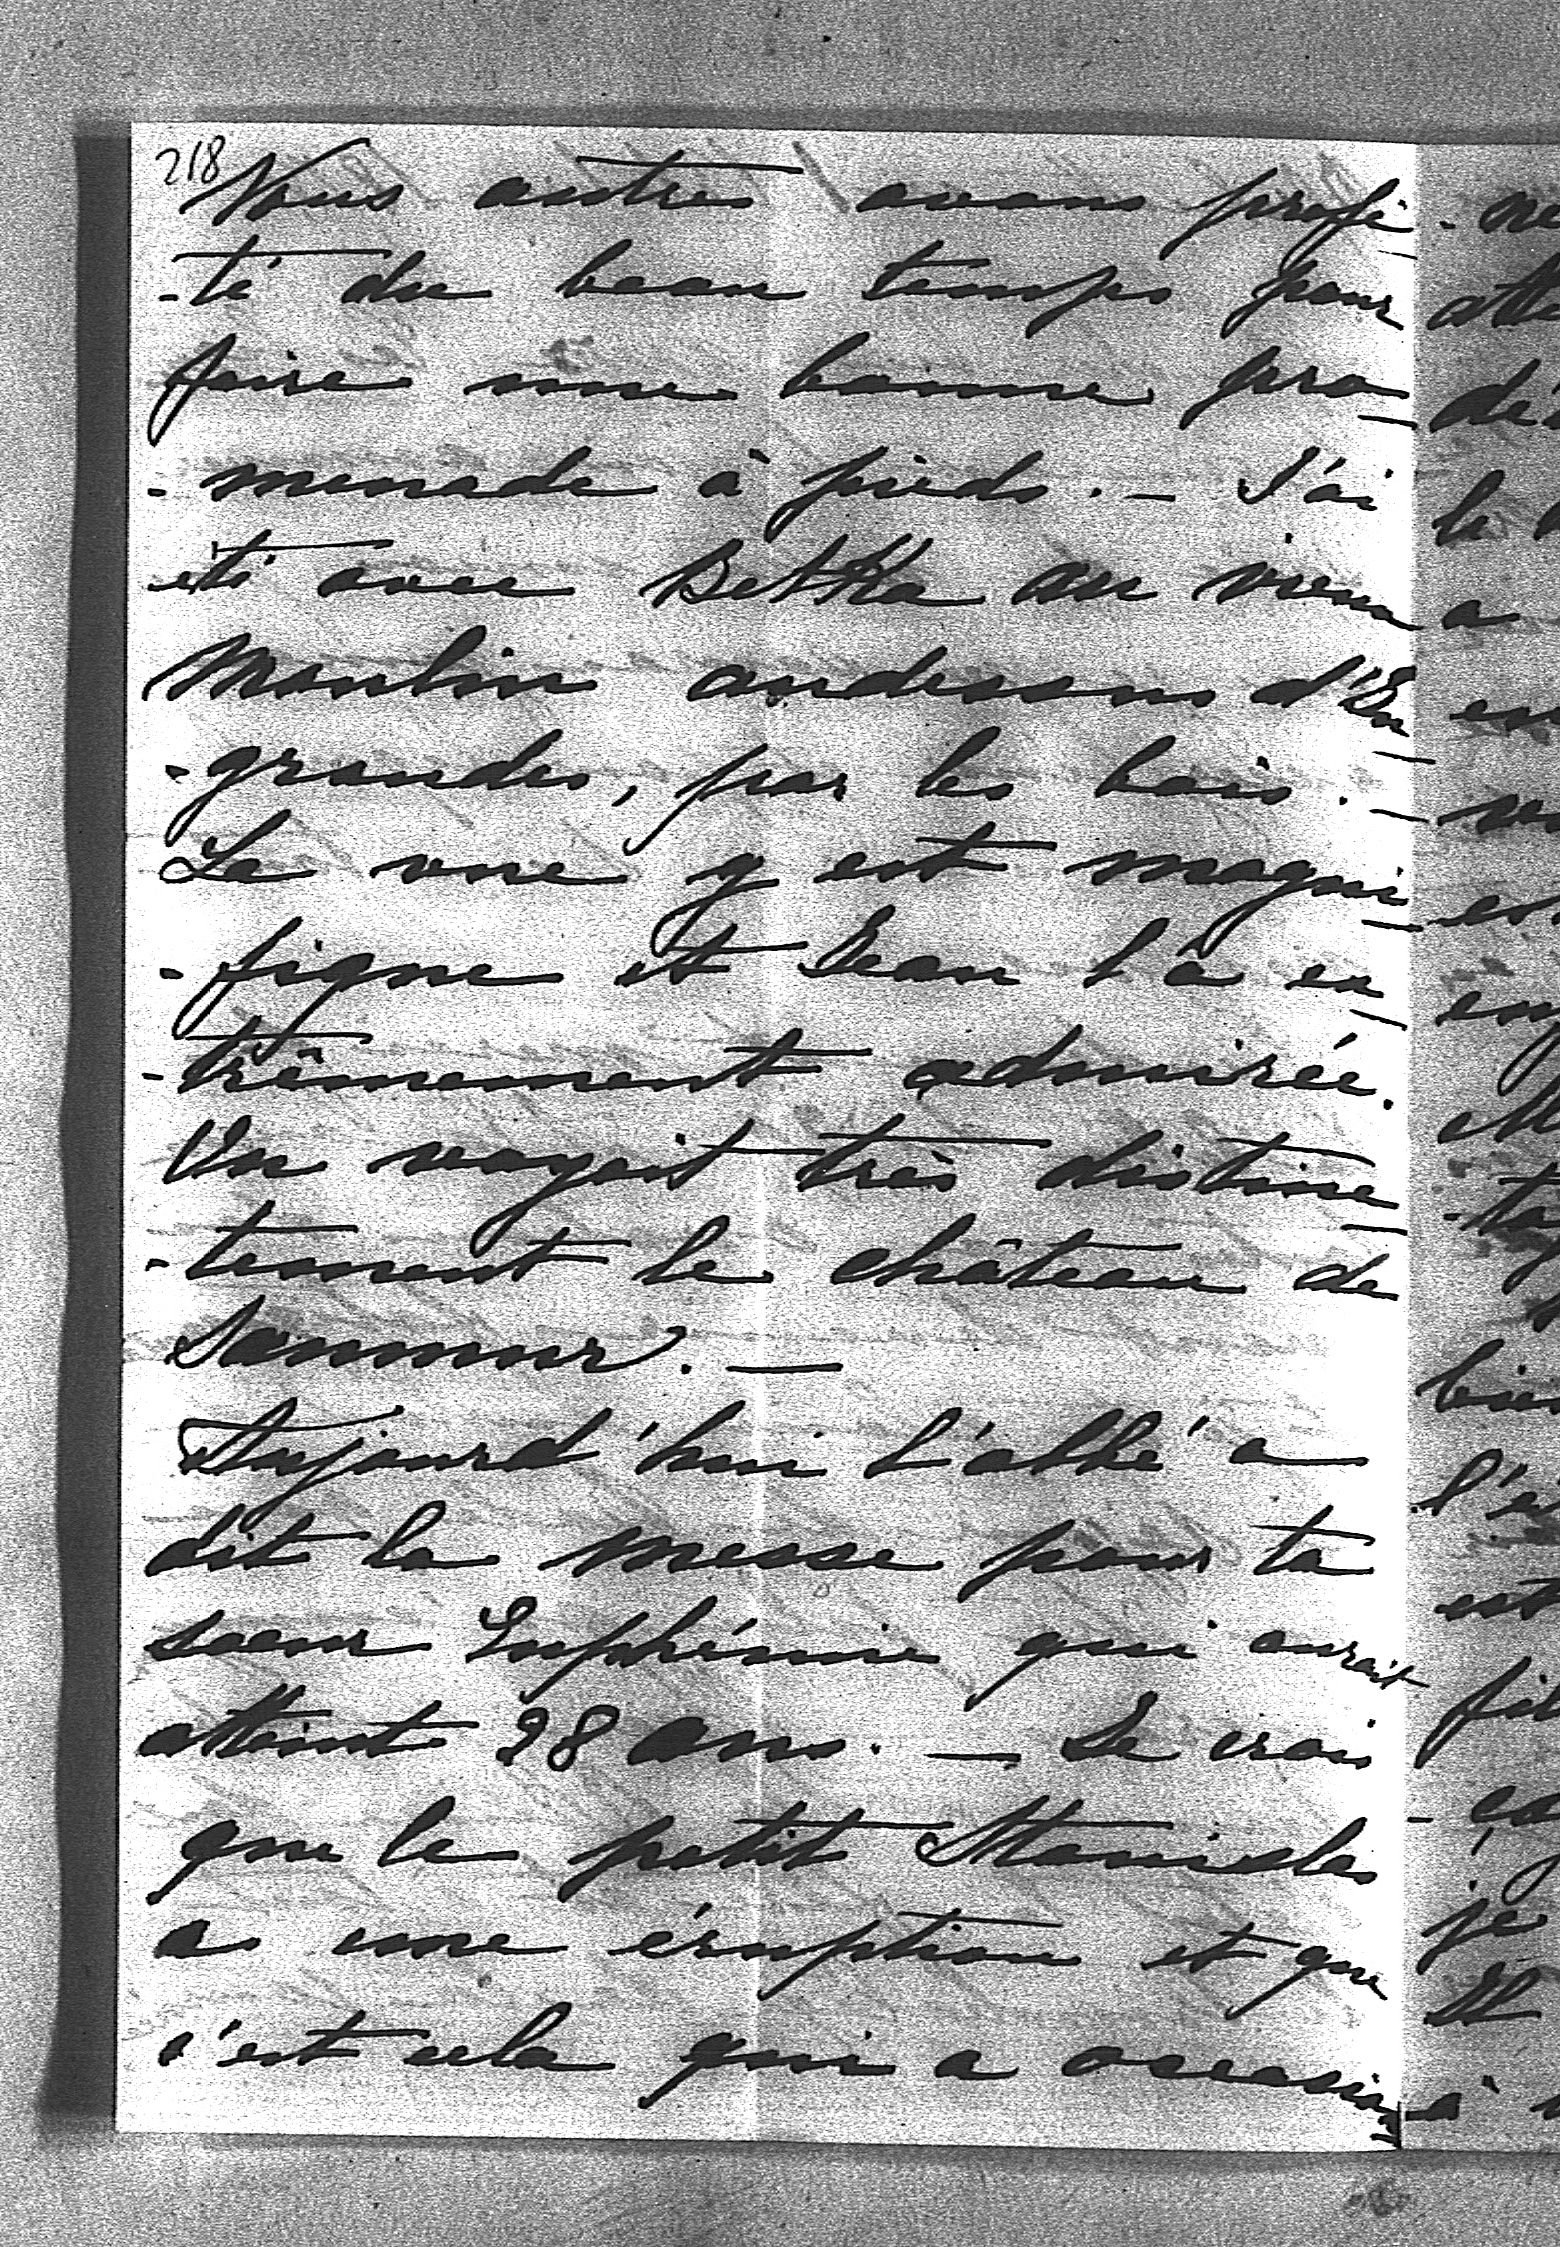 218
Nous autres avons profi-
-té du beau temps pour
faire une bonne pro-
-menade à pieds. — J'ai
été avec Betka au vieux
Moulin audessous d'En-
-grandes, par les bois. —
La vue y est magni-
-fique et Jean l'a ex-
-trêmement admirée.
On voyait très distinc-
-tement le château de
Saumur. —
Aujourd'hui l'abbé a
dit la messe pour ta
soeur Euphémie qui aurait
atteint 28 ans. — Je crois
que le petit Stanislas
a une éruption et que
c'est cela qui a occasion-